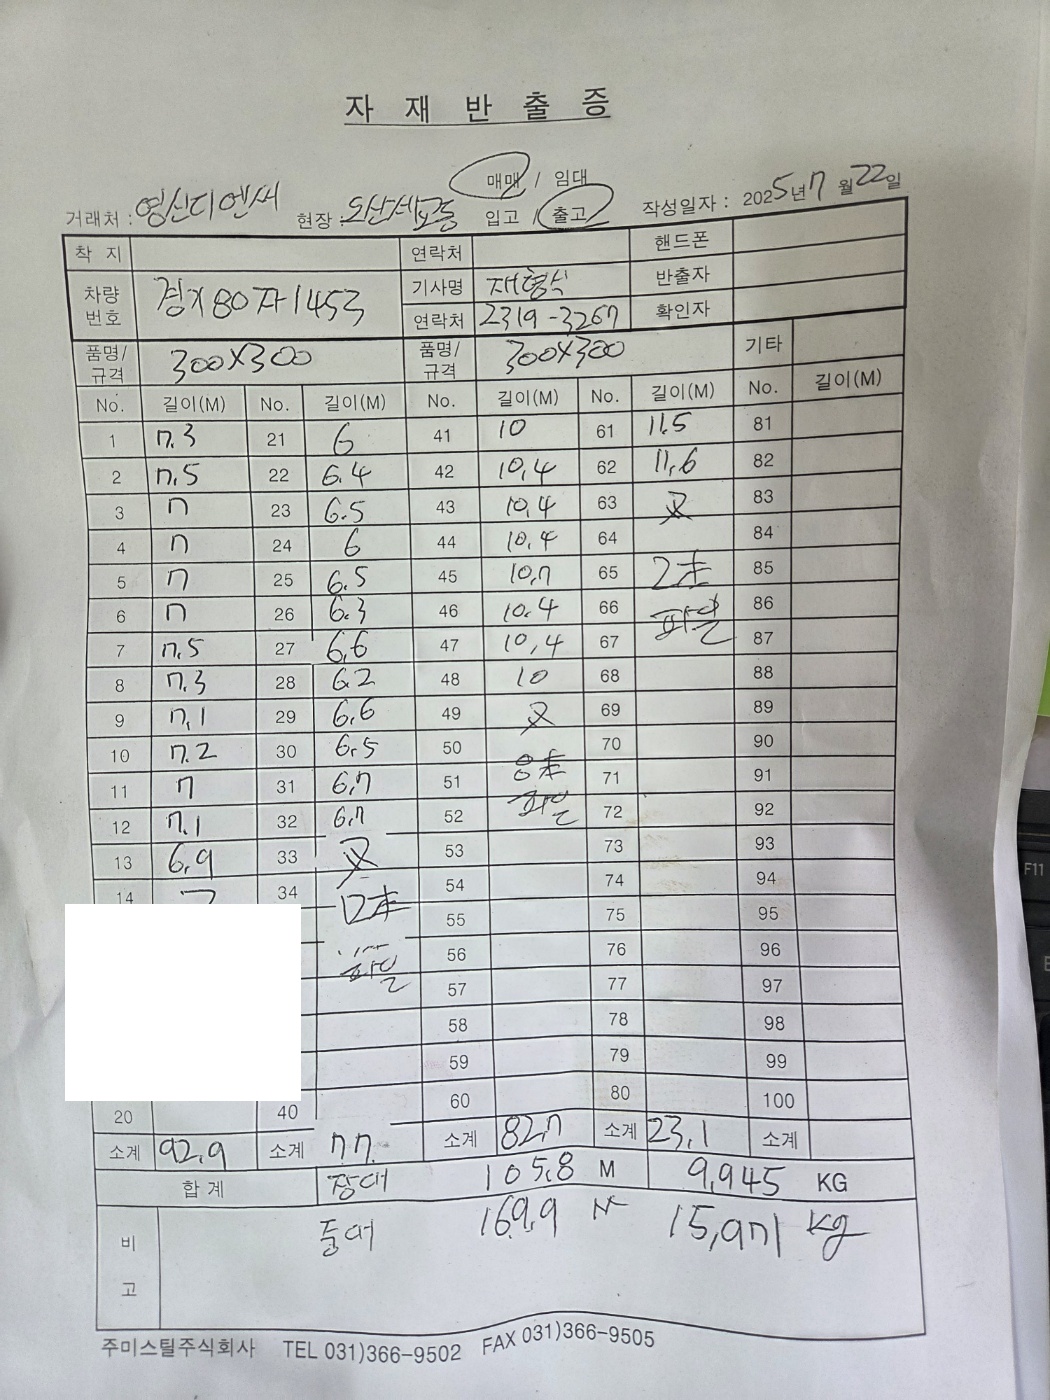 자 재 반 출 증
매매 / 임대
거래처 : 영신디엔씨 현장 : 오산세교동 입고 / 출고 작성일자 : 2025년 7월 22일
착 지 연락처 핸드폰
차량번호 경기80자1453 기사명 반출자
연락처 2319-3267 확인자
품명/규격 300X300 품명/규격 300X300 기타
No. 길이(M) No. 길이(M) No. 길이(M) No. 길이(M) No. 길이(M)
1 7.3 21 6 41 10 61 11.5 81
2 7.5 22 6.4 42 10.4 62 11.6 82
3 7 23 6.5 43 10.4 63 又 83
4 7 24 6 44 10.4 64 84
5 7 25 6.5 45 10.7 65 2本 85
6 7 26 6.3 46 10.4 66 파일 86
7 7.5 27 6.6 47 10.4 67 87
8 7.3 28 6.2 48 10 68 88
9 7.1 29 6.6 49 又 69 89
10 7.2 30 6.5 50 70 90
11 7 31 6.7 51 8本 71 91
12 7.1 32 6.7 52 파일 72 92
13 6.9 33 又 53 73 93
14 34 12本 54 74 94
55 75 95
파일 56 76 96
57 77 97
58 78 98
59 79 99
20 40 60 80 100
소계 92.9 소계 77. 소계 82.7 소계 23.1 소계
합 계 장대 105.8 M 9,945 KG
비고 둘대 169.9 M 15,971 kg
주미스틸주식회사 TEL 031)366-9502 FAX 031)366-9505